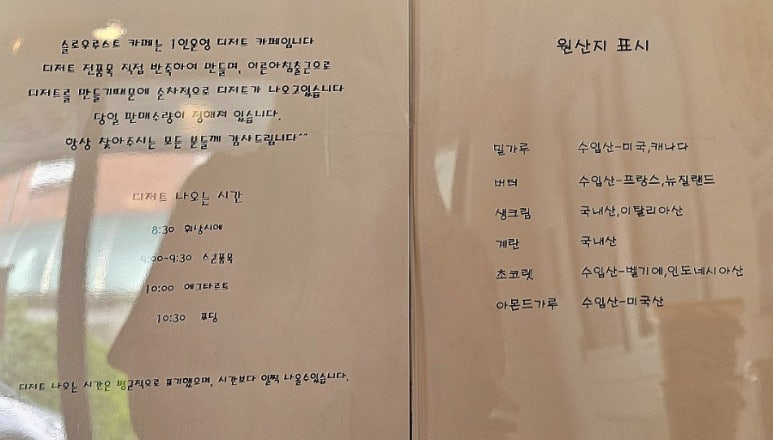 슬로우로스트 카페는 1인운영 디저트 카페입니다
디저트 전품목 직접 반죽하여 만들며, 이른아침출근으로
디저트를 만들기때문에 순차적으로 디저트가 나오고있습니다
당일 판매수량이 정해져 있습니다.
항상 찾아주시는 모든 분들께 감사드립니다^^
디저트 나오는 시간
8:30 휘낭시에
9:00-9:30 스콘품목
10:00 에그타르트
10:30 푸딩
디저트 나오는 시간은 평균적으로 표기했으며, 시간보다 일찍 나올수있습니다.
원산지 표시
밀가루 수입산-미국,캐나다
버터 수입산-프랑스,뉴질랜드
생크림 국내산,이탈리아산
계란 국내산
초코렛 수입산-벨기에,인도네시아산
아몬드가루 수입산-미국산